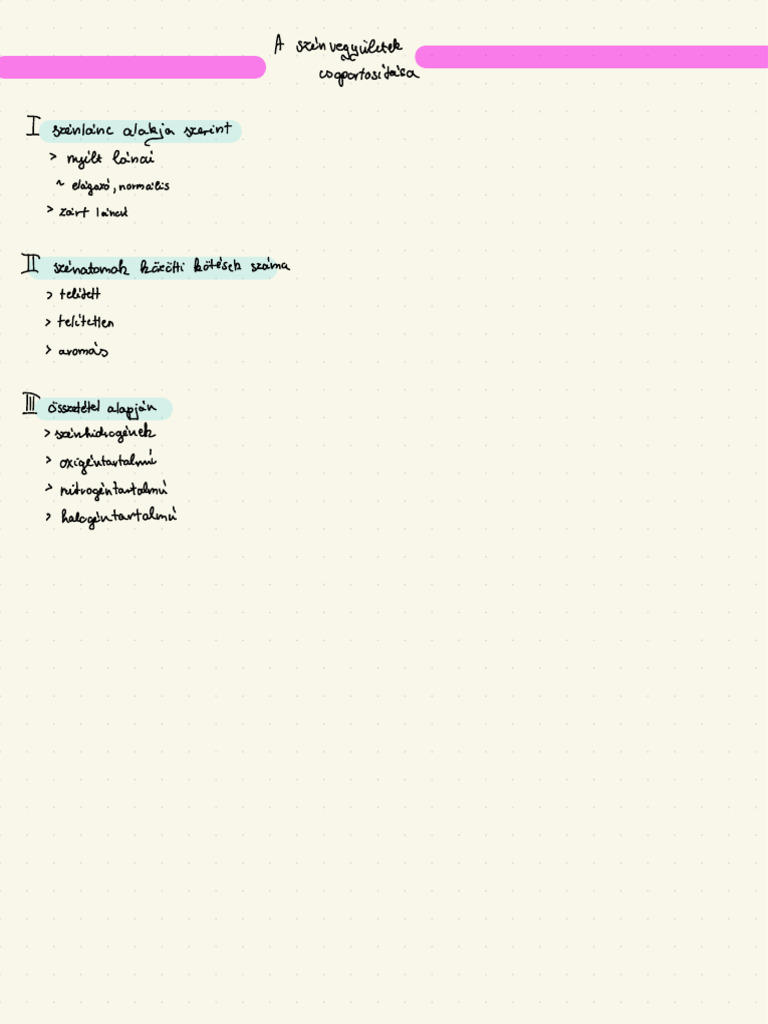 A szénvegyületek
csoportosítása
I szénlánc alakja szerint
> nyílt láncú
~ elágazó, normális
> zárt láncú
II szénatomok közötti kötések száma
> telített
> telítetlen
> aromás
III összetétel alapján
> szénhidrogének
> oxigéntartalmú
> nitrogéntartalmú
> halogéntartalmú